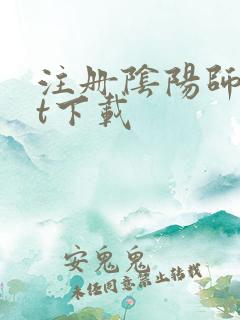 注册陰陽師
t下載
安鬼鬼
未经同意禁止转载